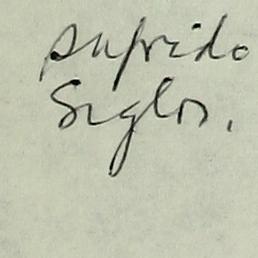 sufrido
Siglos.